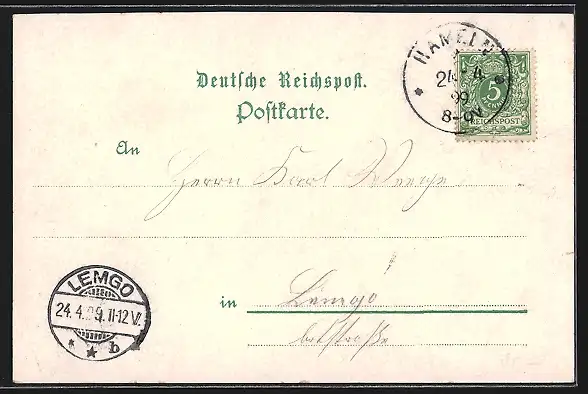 HAMELN
24 4
99
8-9V
5
PFENNIG
REICHSPOST
Deutsche Reichspost.
Postkarte.
An
Herrn Karl
in Lemgo
LEMGO
24.4.99.11-12V.
b